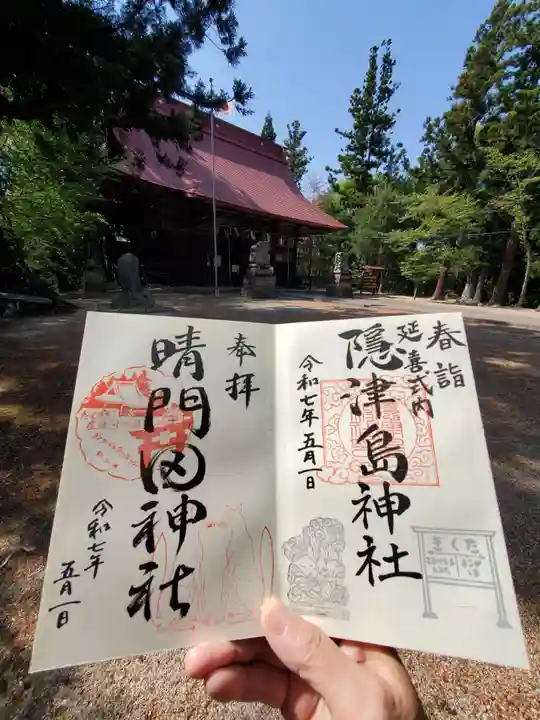 春詣
延喜式内
隠津島神社
令和七年五月一日
きくた
奉拝
晴門田神社
令和七年
五月一日